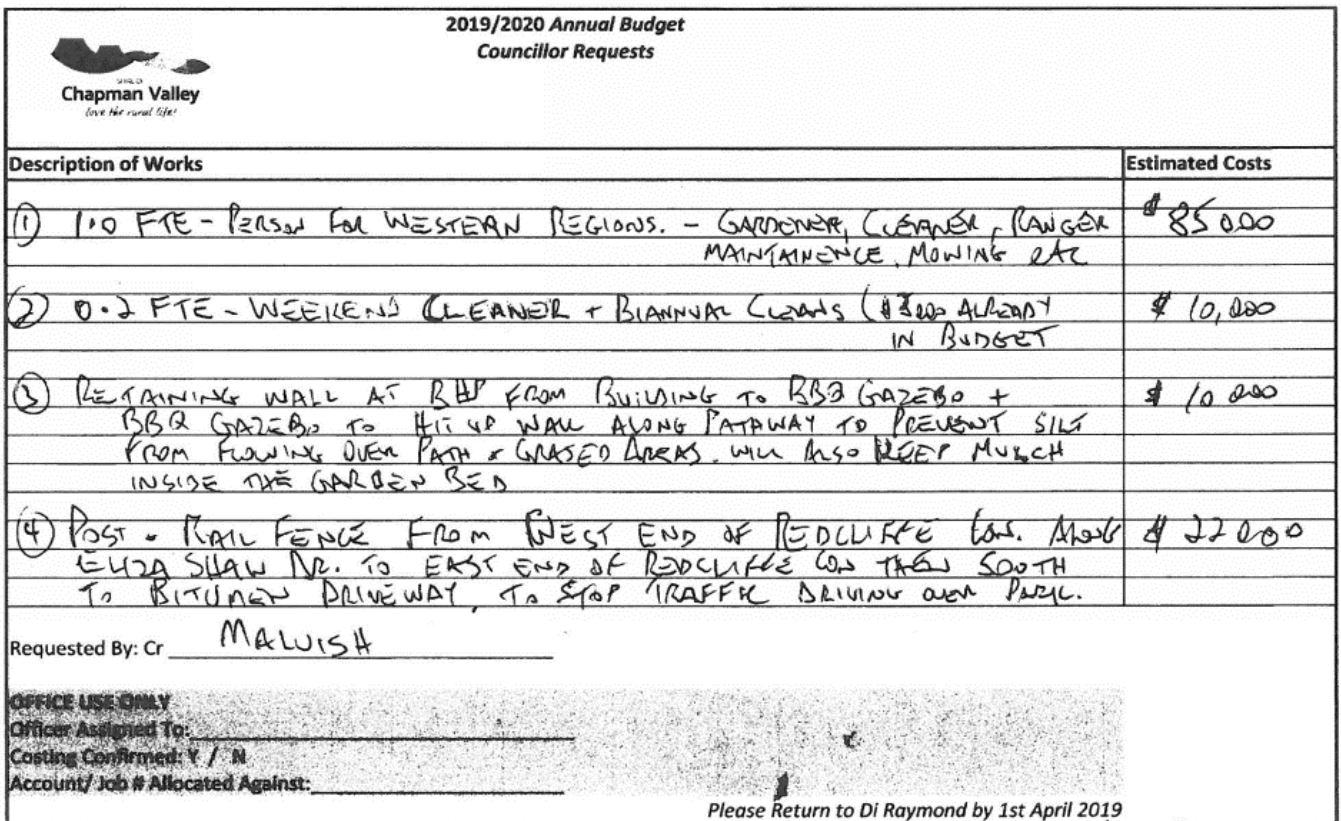 2019/2020 Annual Budget
Councillor Requests
SHIRE OF
Chapman Valley
love the rural life!
Description of Works
Estimated Costs
① 1.0 FTE - PERSON FOR WESTERN REGIONS. - GARDENER, CLEANER, RANGER
$ 85 000
MAINTAINENCE, MOWING etc
② 0.2 FTE - WEEKEND CLEANER + BIANNUAL CLEANS ( ALREADY
$ 10,000
IN BUDGET
③ RETAINING WALL AT BHP FROM BUILDING TO BBQ GAZEBO +
$ 10 000
BBQ GAZEBO TO HIT UP WALL ALONG PATHWAY TO PREVENT SILT
FROM FLOWING OVER PATH & GRASED AREAS. WILL ALSO KEEP MULCH
INSIDE THE GARDEN BED
④ POST - RAIL FENCE FROM WEST END OF REDCLIFFE CON. ALONG
$ 22 000
ELIZA SHAW DR. TO EAST END OF REDCLIFFE CON THEN SOUTH
TO BITUMEN DRIVEWAY, TO STOP TRAFFIC DRIVING OVER PARK.
Requested By: Cr MALUISH
OFFICE USE ONLY
Officer Assigned To:
Costing Confirmed: Y / N
Account/ Job # Allocated Against:
Please Return to Di Raymond by 1st April 2019